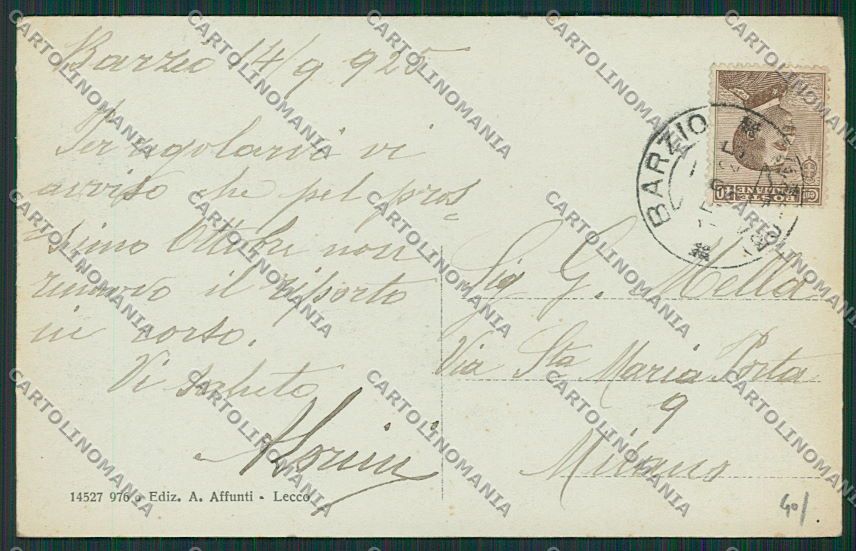 Barzio 14/9 925
Per regolarvi vi
avviso che pel pros=
simo Ottobre non
rinnovo il riporto
in corso.
Vi saluto
Sig G. Mella
Via Sta Maria Porta
9
Milano
BARZIO
POSTE ITALIANE
14527 976 Ediz. A. Affunti - Lecco
40/
CARTOLINOMANIA